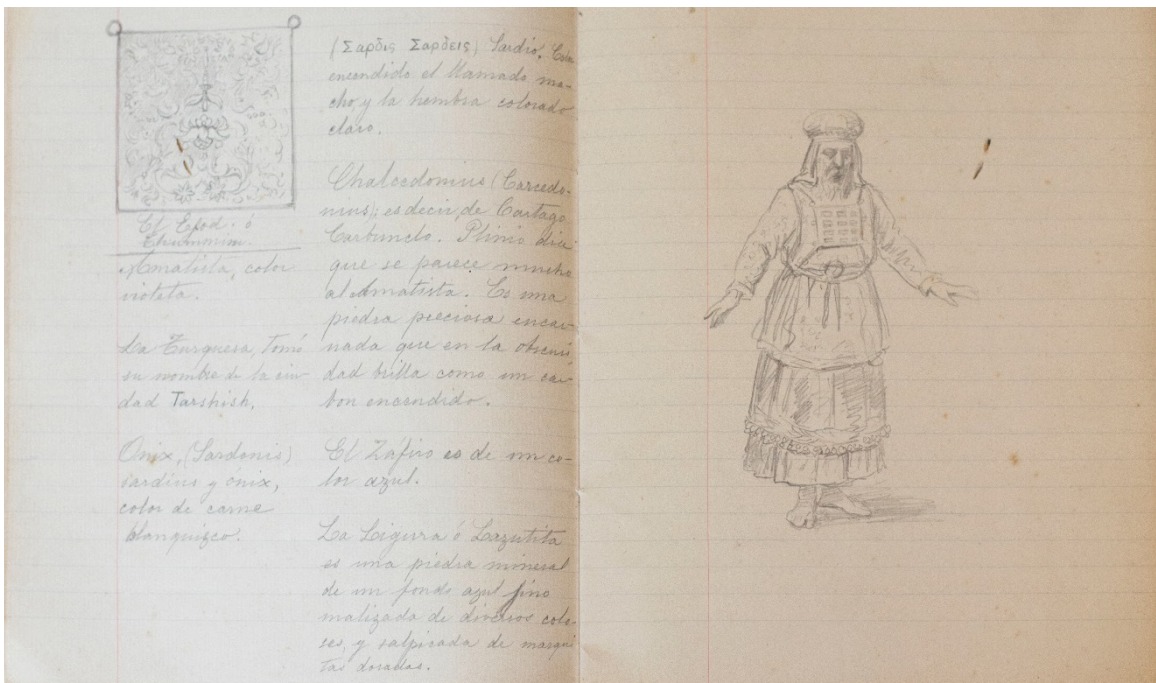 El Efod. ó
Thummim.
Amatista, color
violeta.
La Turquesa, Tomó
su nombre de la ciu-
dad Tarshish.
Onix, (Sardonis)
sardius y ónix,
color de carne
blanquizco.
(Σαρδις Σαρδεις) Sardio. Color
encendido el llamado ma-
cho, y la hembra colorado
claro.
Chalcedonius (Carcedo-
nius); es decir, de Cartago
Carbunclo. Plinio dice
que se parece mucho
al Amatista. Es una
piedra preciosa encar-
nada que en la obscuri
dad brilla como un car-
bon encendido.
El Záfiro es de un co-
lor azul.
La Ligura ó Lazutita
es una piedra mineral
de un fondo azul fino
matizada de diversos colo-
res, y salpicada de marqui
tas doradas.